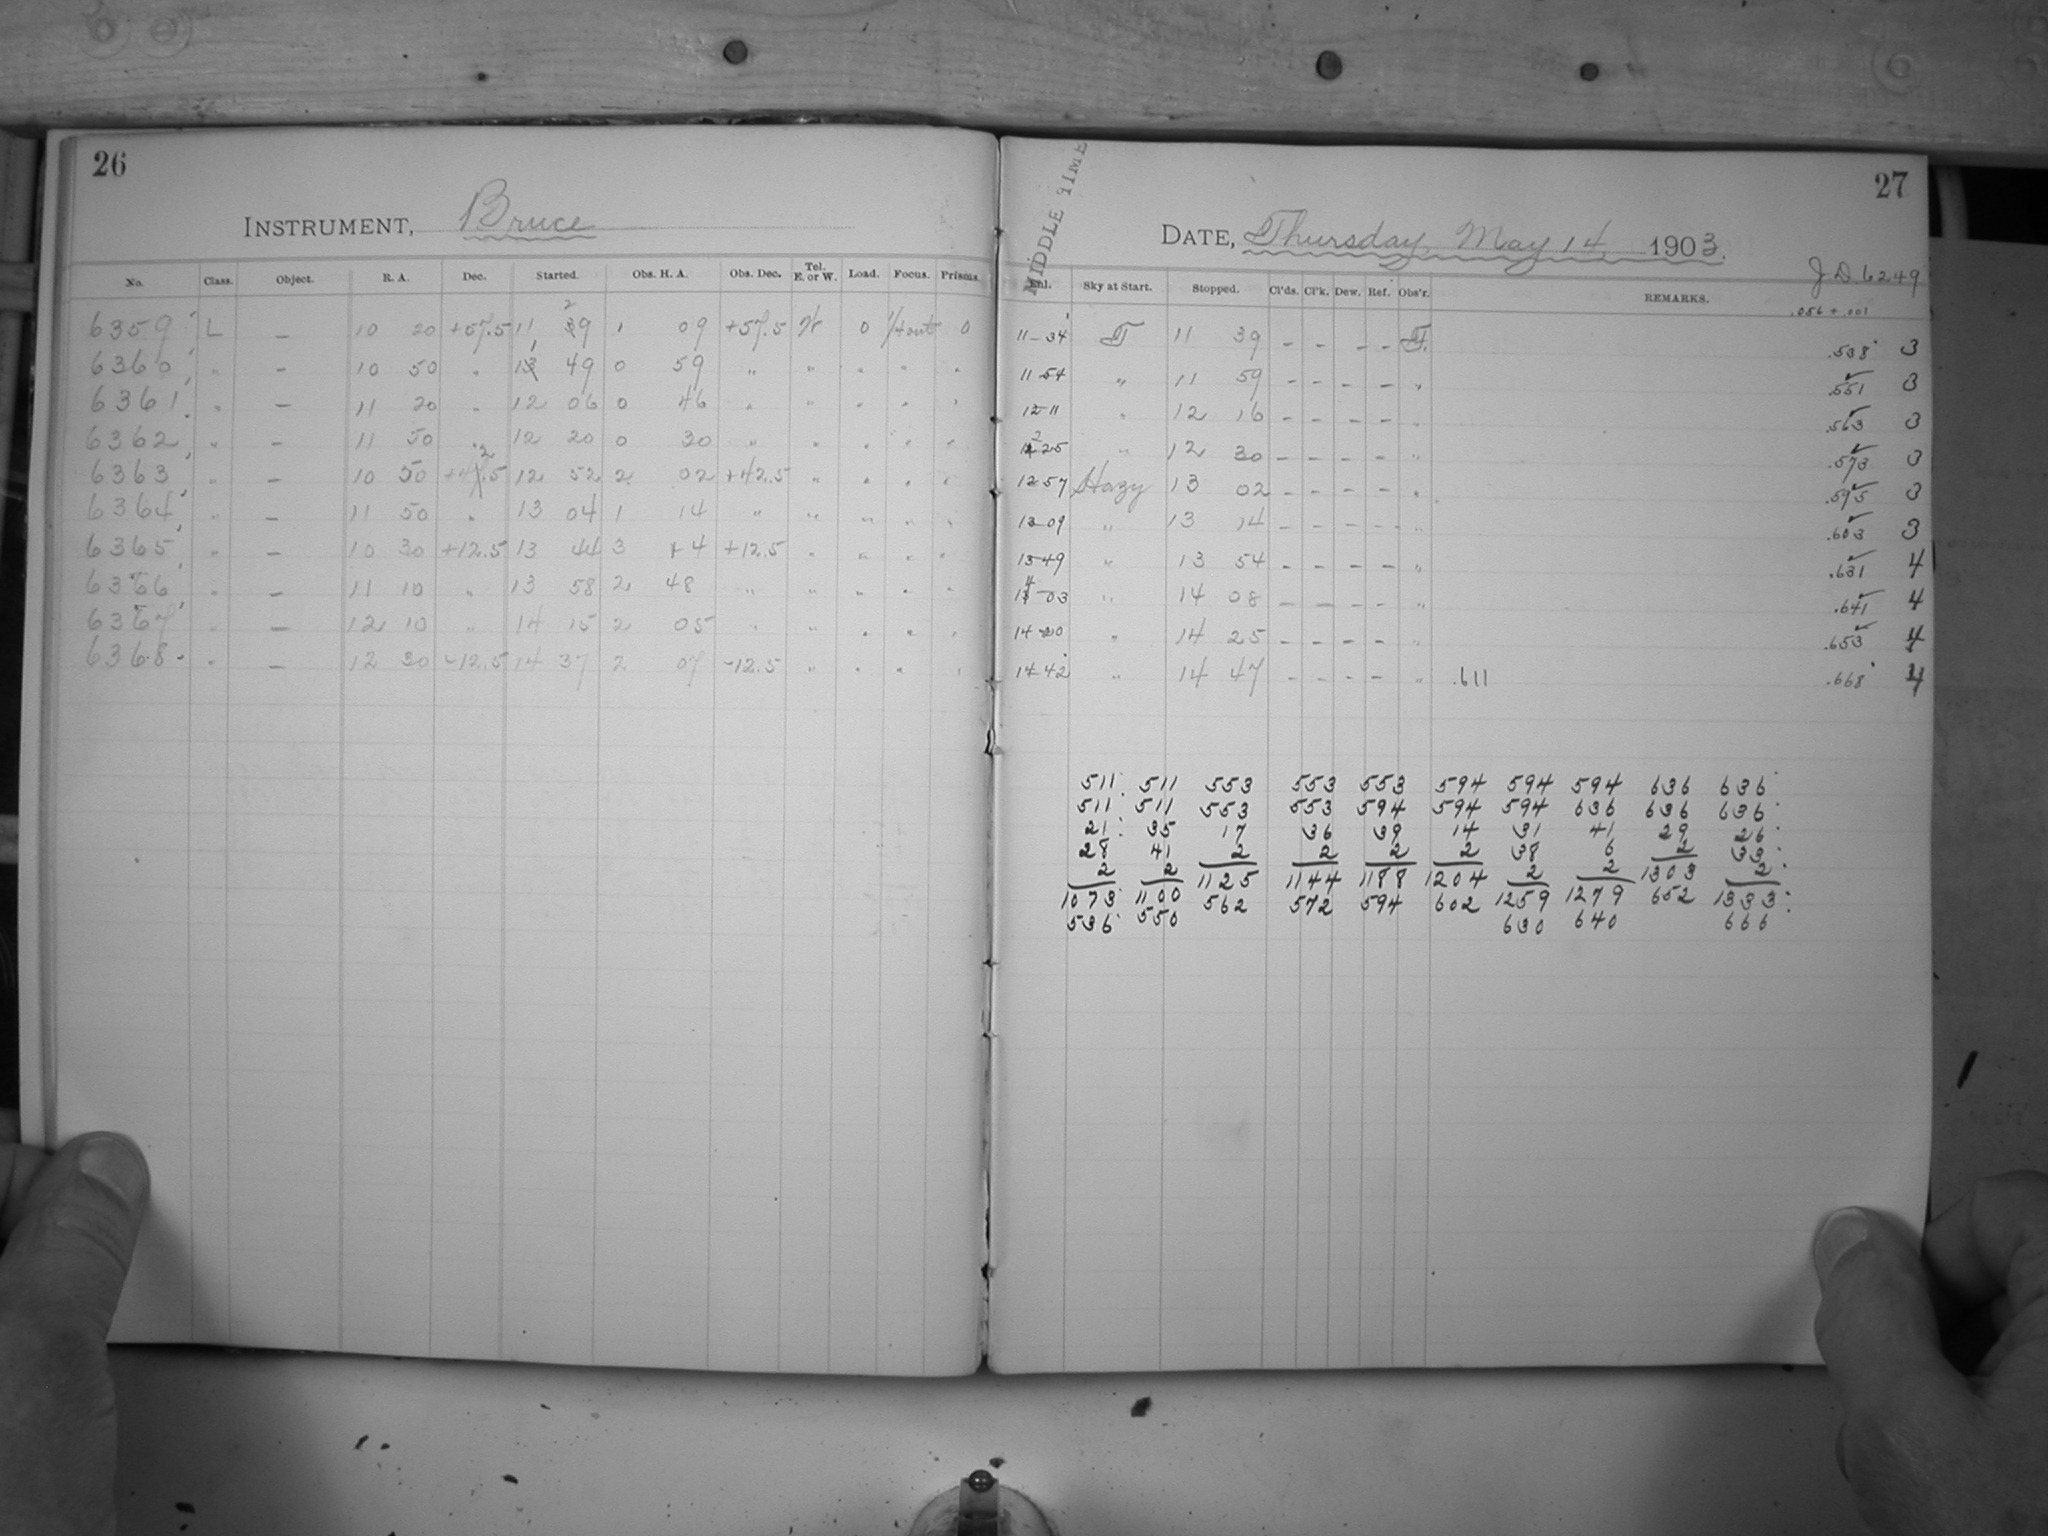 26
INSTRUMENT, Bruce
No. Class. Object. R. A. Dec. Started. Obs. H. A. Obs. Dec. Tel. E. or W. Load. Focus. Prisms.
6359 L — 10 20 +57.5 11 29 1 09 +57.5 W 0 1/4 out 0
6360 " — 10 50 " 11 49 0 59 " " " " "
6361 " — 11 20 " 12 06 0 46 " " " " "
6362 " — 11 50 " 12 20 0 30 " " " " "
6363 " — 10 50 +42.5 12 52 2 02 +42.5 " " " "
6364 " — 11 50 " 13 04 1 14 " " " " "
6365 " — 10 30 +12.5 13 44 3 14 +12.5 " " " "
6366 " — 11 10 " 13 58 2 48 " " " " "
6367 " — 12 10 " 14 15 2 05 " " " " "
6368 " — 12 30 -12.5 14 37 2 07 -12.5 " " " "
27
MIDDLE TIME
DATE, Thursday, May 14 1903.
J D 6249
Sky at Start. Stopped. Cl'ds. Cl'k. Dew. Ref. Obs'r. REMARKS.
.056 + .001
11-34 T 11 39 - - - - F. .538 3
11-54 " 11 59 - - - - " .551 3
12-11 " 12 16 - - - - " .563 3
12 25 " 12 30 - - - - " .573 3
12-57 Hazy 13 02 - - - - " .595 3
13-09 " 13 14 - - - - " .603 3
13-49 " 13 54 - - - - " .631 4
14-03 " 14 08 - - - - " .641 4
14-20 " 14 25 - - - - " .653 4
14-42 " 14 47 - - - - " .611 .668 4
511 511 553 553 553 594 594 594 636 636
511 511 553 553 594 594 594 636 636 636
21 35 17 36 39 14 31 41 29 26
28 41 2 2 2 2 38 6 2 33
2 2 1125 1144 1188 1204 2 2 1303 2
1073 1100 562 572 594 602 1259 1279 652 1333
536 550 630 640 666